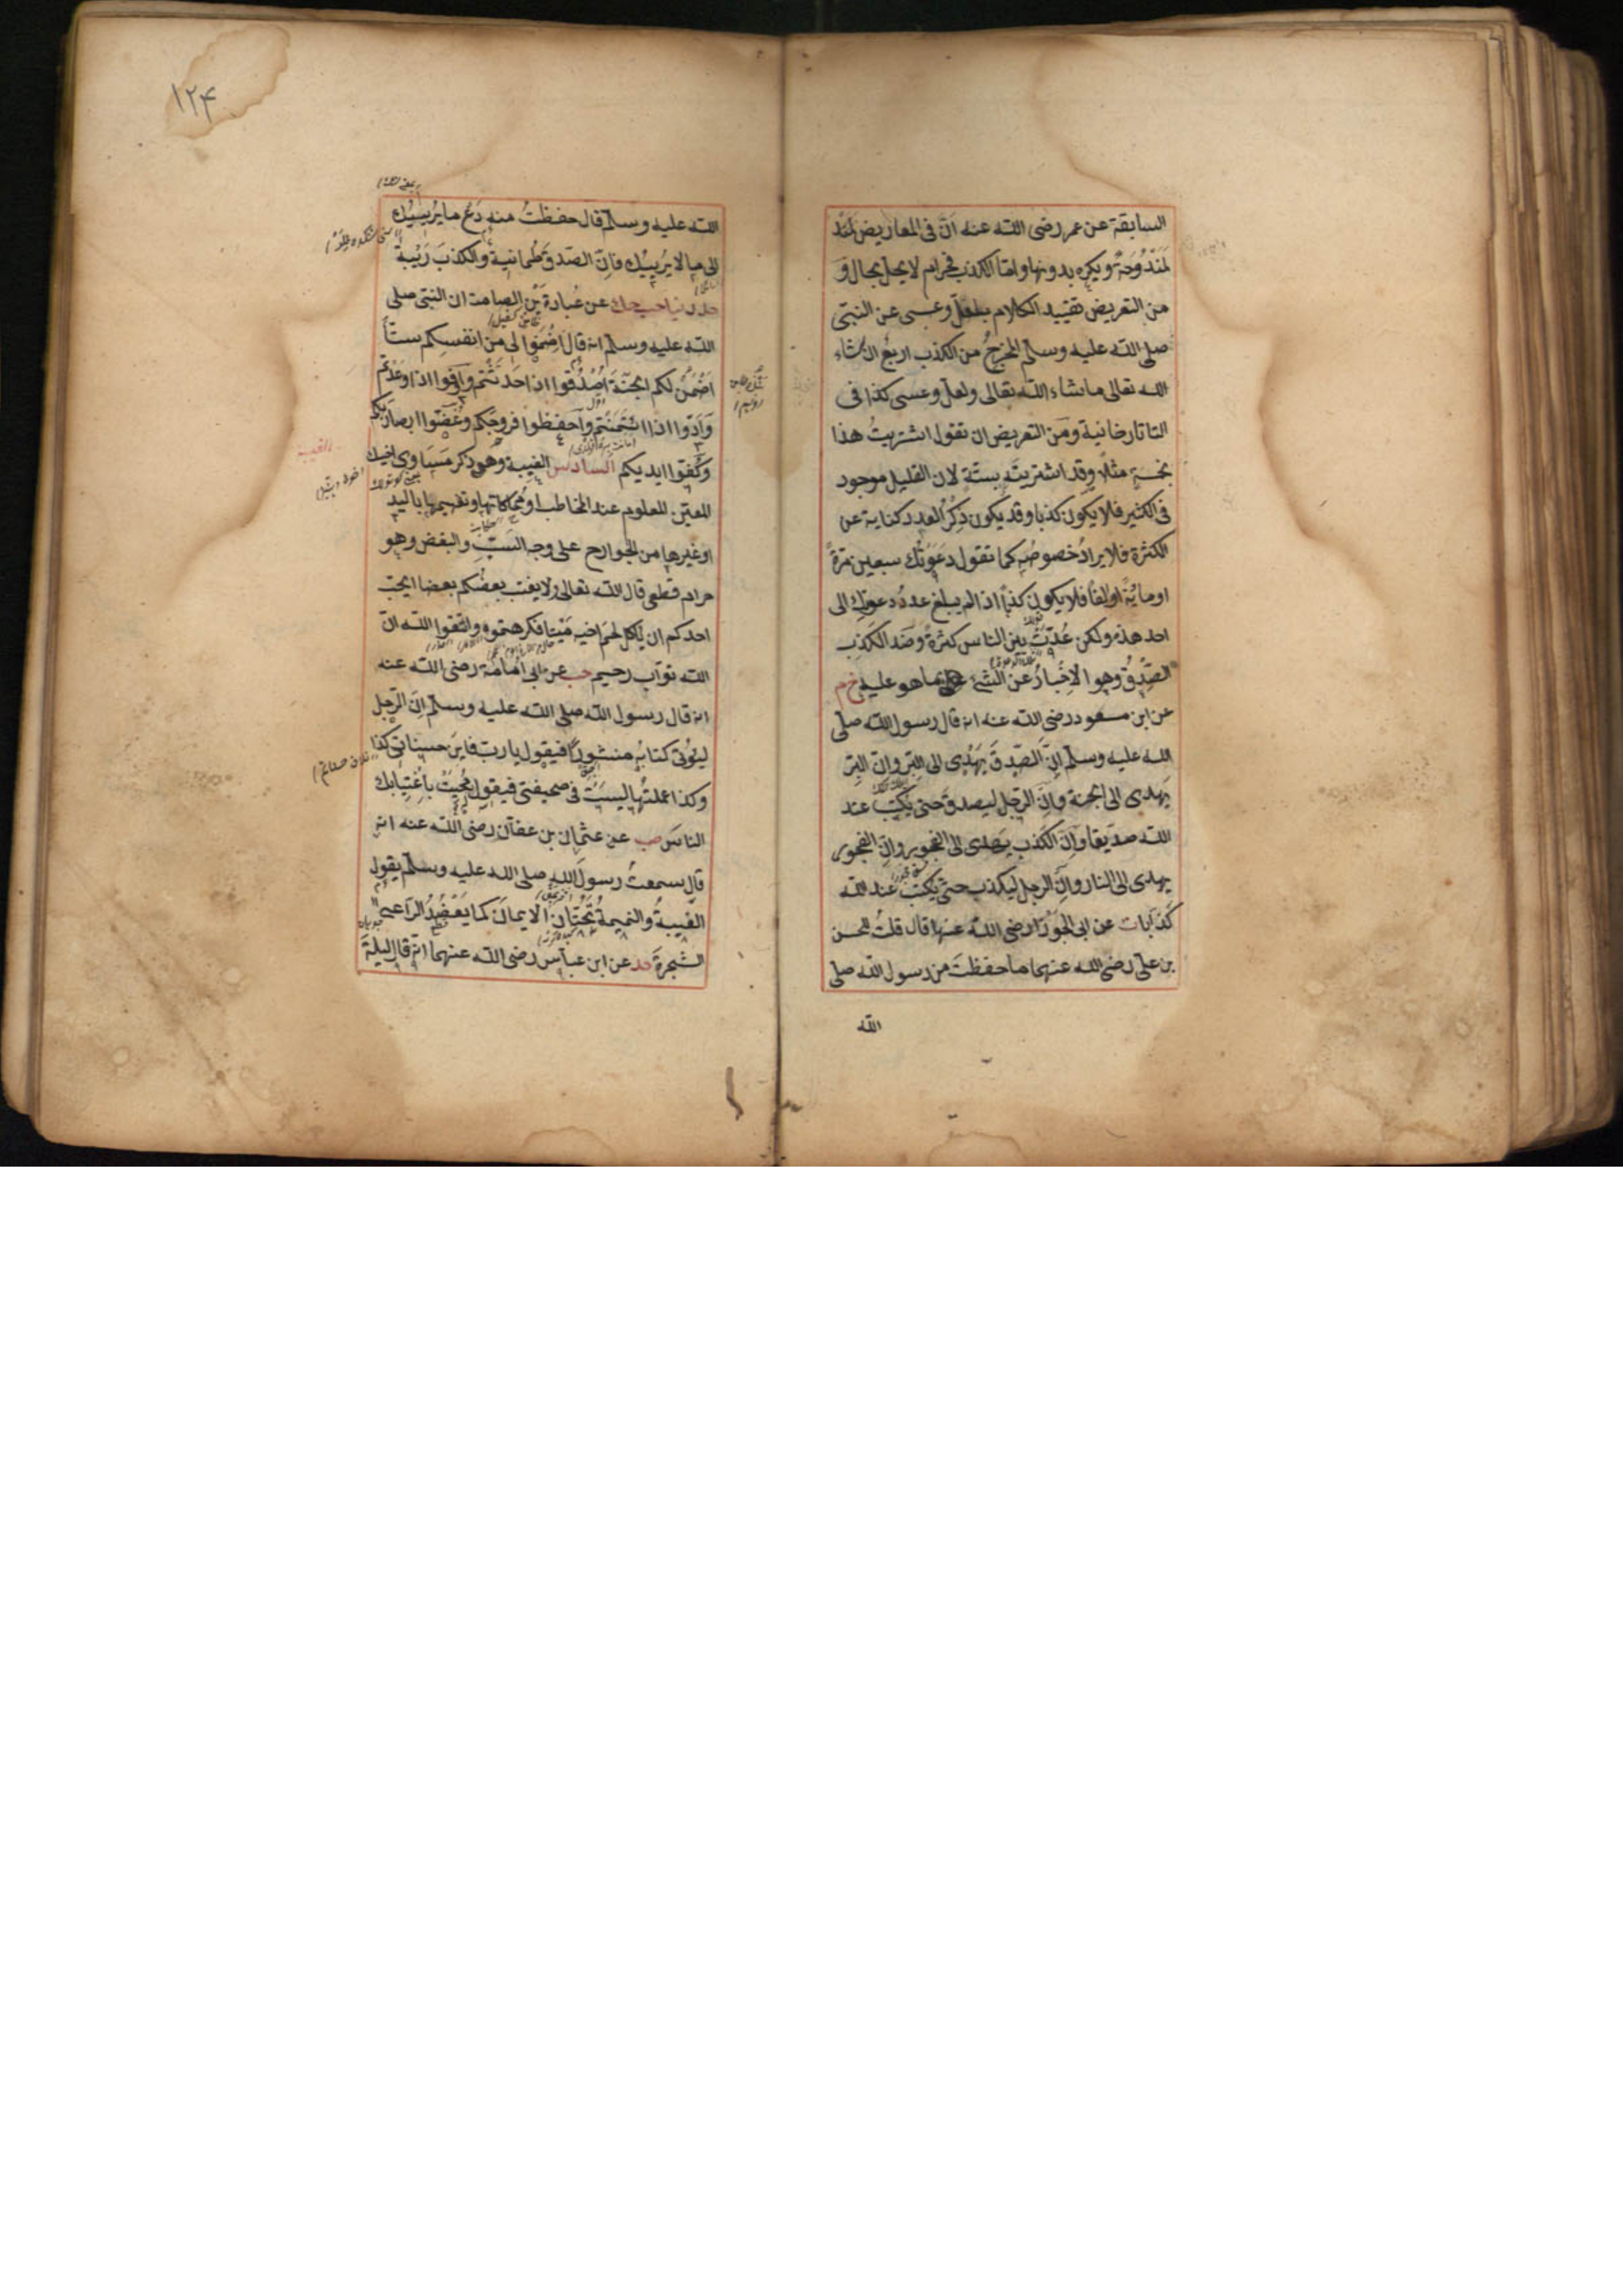 السابقة عن عمر رضى الله عنه انّ فى المعاريض
لمَنْدُوحَةً ويكره بدونها واما الكذب فحرام لا يحل بحال و
من التعريض تقييد الكلام بلعلّ وعسى عن النبىّ
صلى الله عليه وسلم المخرجُ من الكذب اربعٌ ان شاء
الله تعالى ما شاء الله تعالى ولعل وعسى كذا فى
التاتارخانية ومن التعريض ان تقول اشتريتُ هذا
بخمسة مثلاً وقد اشتريتَه بستّة لان القليل موجود
فى الكثير فلا يكون كذبا وقد يكون ذِكْرُ العدد كناية عن
الكثرة فلا يرادُ خصوصُه كما تقول دَعَوْتُك سبعين مرّةً
او مائةً او الفاً فلا يكون كذباً اذا لم يبلغ عددُ دعوتِك الى
احد هذه ولكن عُدّتْ بين الناس كثرةً وضد الكَذِبِ
الصِّدْقُ وهو الاِخْبارُ عن الشئ على ما هو عليه خ م
عن ابن مسعود رضى الله عنه انه قال رسول الله صلى
الله عليه وسلم انّ الصِّدقَ يَهْدِى الى البِرّ وانّ البِرّ
يهدى الى الجنة وانّ الرّجل ليصدق حتى يُكتبَ عند
الله صدّيقا وانّ الكذب يهدى الى الفجور وانّ الفجور
يهدى الى النار وانّ الرجل ليكذب حتى يكتبَ عند الله
كذّابا ت عن ابى الجَوْزاء رضى الله عنها قال قلتُ للحسن
بن على رضى الله عنهما ما حفظتَ من رسول الله صلى
الله
١٢٤
الله عليه وسلم قال حفظتُ منه دَعْ ما يُرِيبُك
الى ما لا يُرِيبُك فانّ الصّدقَ طُمانينة والكذبَ رَيْبة
حد دنيا حب حك عن عُبادةَ بن الصامت ان النبى صلى
الله عليه وسلم انه قال اضْمَنوا لى من انفسِكم ستّاً
اَضْمَنْ لكم الجنّةَ اُصْدُقوا اذا حَدّثْتُم واَوْفوا اذا وعَدْتم
وَاَدّوا اذا ائتُمِنْتُم واحفظوا فروجَكم وغُضّوا ابصارَكم
وكُفّوا ايديكم السادس الغيبة وهى ذكر مَساوى اخيك
المعيّن المعلوم عند المخاطب او مُحاكاتها وتفهيمها باليد
او غيرها من الجوارح على وجه السّبّ والبغض وهو
حرام قطعى قال الله تعالى ولا يغتب بعضُكم بعضا ايحبّ
احدكم ان يأكل لحم اخيه مَيْتا فكرهتموه واتّقوا الله انّ
الله توّاب رحيم حب عن ابى اُمامة رضى الله عنه
انه قال رسول الله صلى الله عليه وسلم انّ الرّجل
ليُؤتى كتابُه منشورًا فيقول يا ربّ فاين حسناتى كذا
وكذا عملتُها ليستْ فى صحيفتى فيقول مُحِيَتْ باغْتِيابك
الناسَ صب عن عثمان بن عفّان رضى الله عنه انه
قال سمعتُ رسولَ الله صلى الله عليه وسلم يقول
الغيبةُ والنميمةُ تَحُتّانِ الايمانَ كما يَعْضِدُ الراعى
الشجرةَ حد عن ابن عباس رضى الله عنهما انه قال ليلةَ
الغيبة